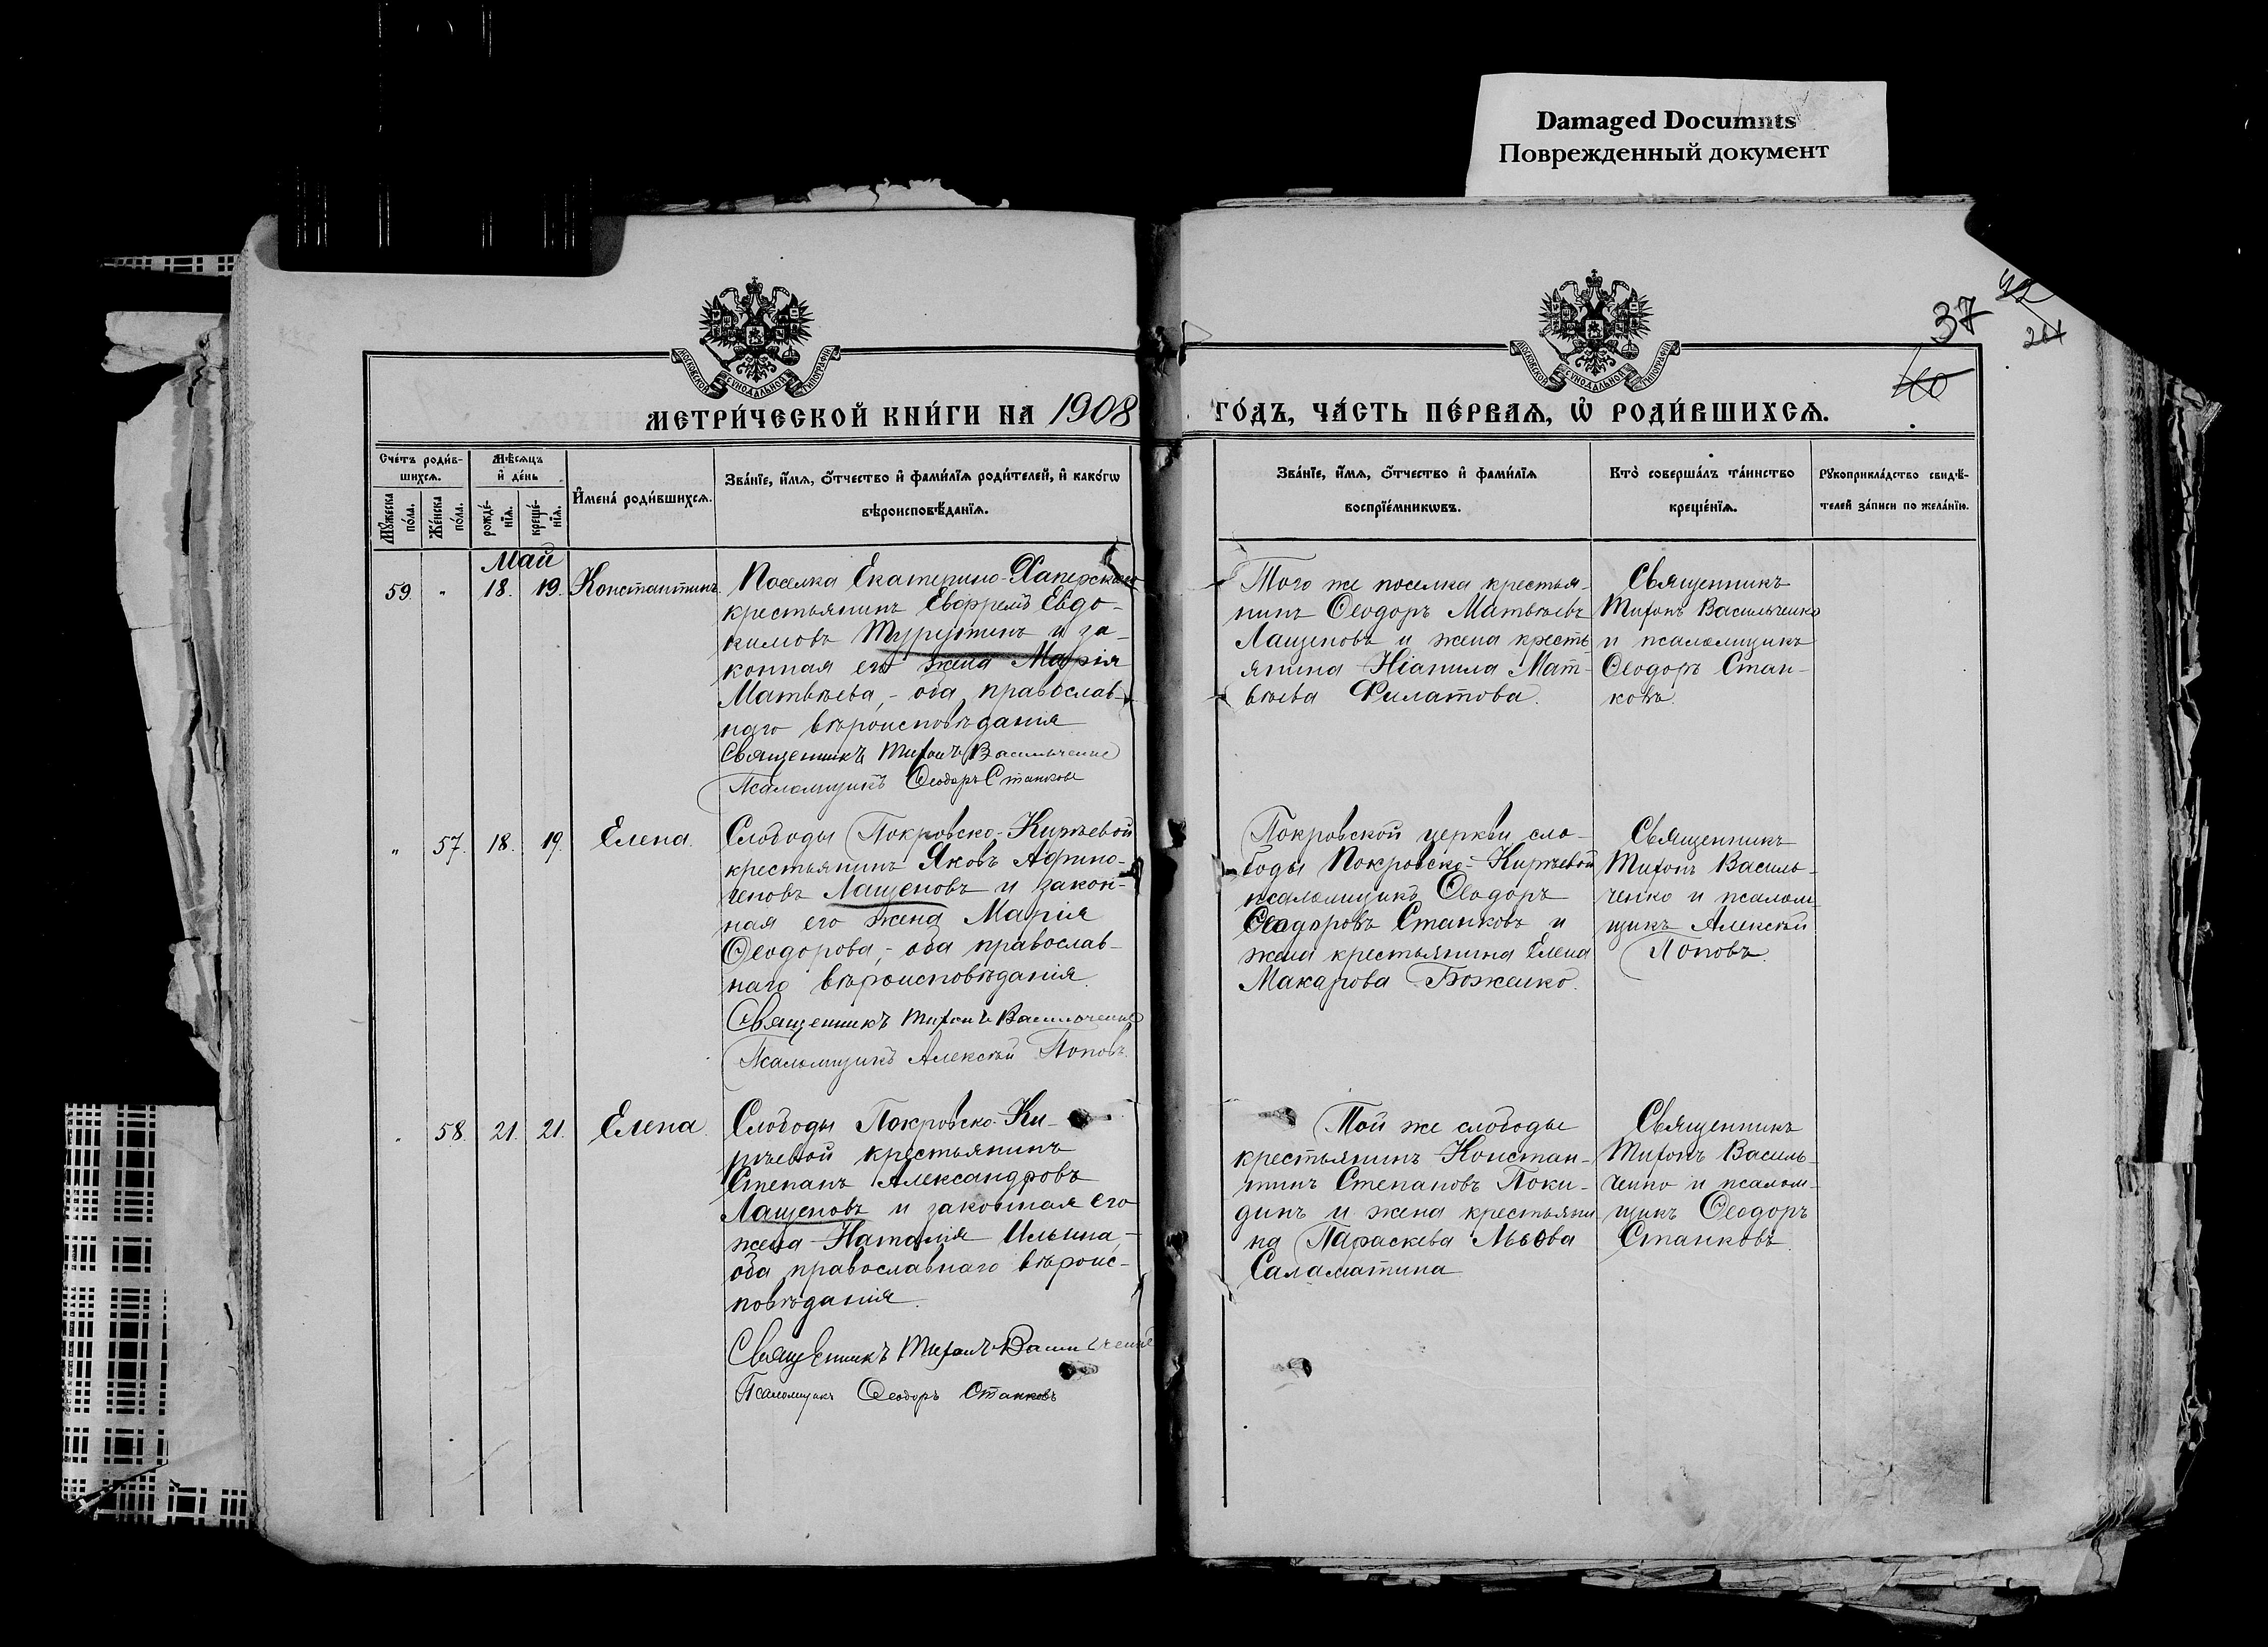 Damaged Documnts
Поврежденный документ
37
МОСКОВСКОЙ СѴНОДАЛЬНОЙ ТИПОГРАФІИ
МОСКОВСКОЙ СѴНОДАЛЬНОЙ ТИПОГРАФІИ
МЕТРИ́ЧЕСКОЙ КНИ́ГИ НА 1908
ГО́ДЪ, ЧА́СТЬ ПЕ́РВАѦ, Ѡ҆ РОДИ́ВШИХСѦ.
Сче́тъ роди́в-
шихсѧ.
Мꙋ́жеска по́ла.
Же́нска по́ла.
Мѣ́сѧцъ и҆ де́нь
рожде́-нїѧ.
креще́-нїѧ.
И҆мена̀ роди́вшихсѧ.
Зва́нїе, и҆́мѧ, ѻ҆́тчество и҆ фами́лїѧ роди́телей, и҆ како́гѡ
вѣроисповѣ́данїѧ.
Зва́нїе, и҆́мѧ, ѻ҆́тчество и҆ фами́лїѧ
воспрїе́мникѡвъ.
Кто̀ соверша́лъ та́инство
креще́нїѧ.
Рꙋкоприкла́дство свидѣ́-
телей за́писи по жела́нїю.
Май
59. " 18. 19. Константинъ.
Поселка Екатерино-Хаперскаго
крестьянинъ Евфремъ Евдо-
кимовъ Турустинъ и за-
конная его жена Марія
Матвѣева,- оба православ-
наго вѣроисповѣданія
Священникъ Тихонъ Васильченко
Псаломщикъ Ѳеодоръ Станковъ
Того же поселка крестья-
нинъ Ѳеодоръ Матвѣевъ
Лащеновъ и жена кресть
янина Неанила Мат-
вѣева Филатова.
Священникъ
Тихонъ Васильченко
и псаломщикъ
Ѳеодоръ Стан-
ковъ.
" 57. 18. 19. Елена.
Слободы Покровско-Кирѣевой
крестьянинъ Яковъ Афино-
геновъ Лащеновъ и закон-
ная его жена Марія
Ѳеодорова,- оба православ-
наго вѣроисповѣданія.
Священникъ Тихонъ Васильченко
Псаломщикъ Алексѣй Поповъ.
Покровской церкви сло-
боды Покровско-Кирѣевой
псаломщикъ Ѳеодоръ
Ѳеодоровъ Станковъ и
жена крестьянина Елена
Макарова Боженко.
Священникъ
Тихонъ Василь-
ченко и псалом-
щикъ Алексѣй
Поповъ.
" 58. 21. 21. Елена.
Слободы Покровско-Ки-
рѣевой крестьянинъ
Степанъ Александровъ
Лащеновъ и законная его
жена Наталія Ильина,-
оба православнаго вѣроис-
повѣданія.
Священникъ Тихонъ Васильченко
Псаломщикъ Ѳеодоръ Станковъ
Той же слободы
крестьянинъ Констан-
тинъ Степановъ Поки-
динъ и жена крестьяни
на Параскева Львова
Саламатина
Священникъ
Тихонъ Василь-
ченко и псалом-
щикъ Ѳеодоръ
Станковъ.